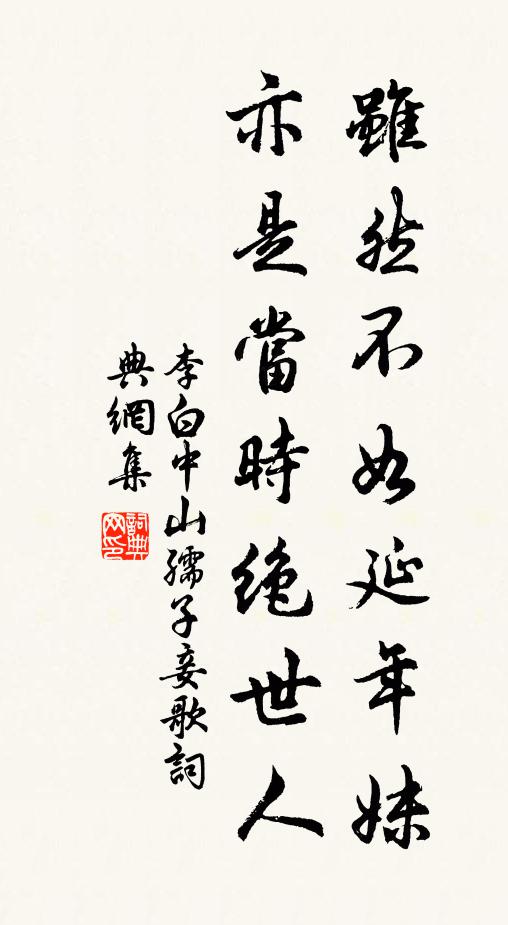 雖然不如延年妹
亦是當時絕世人
李白中山孺子妾歌詞
典網集
詞典網印